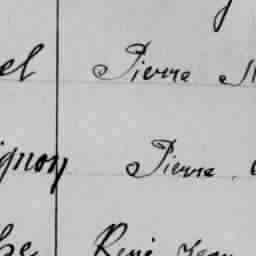 el Pierre
gnon Pierre
René Jean